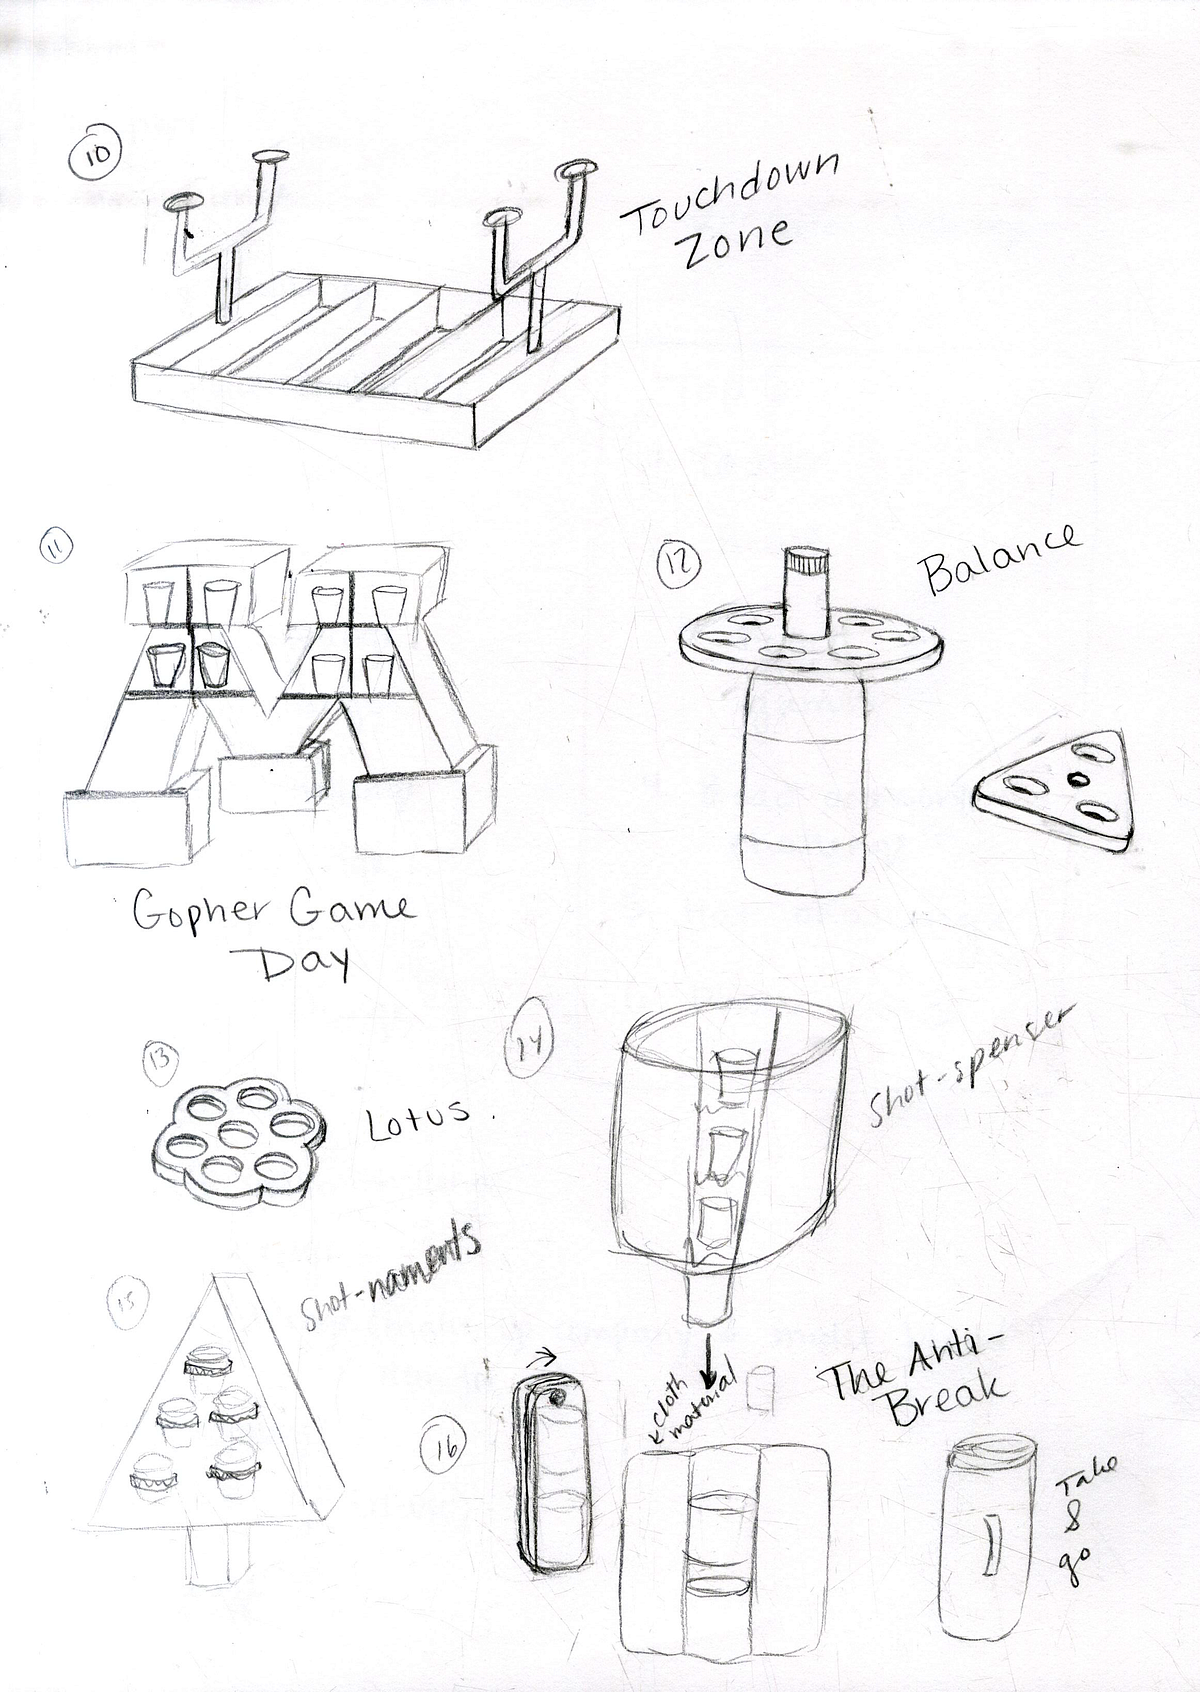 10
Touchdown
Zone
11
Gopher Game
Day
12
Balance
13
Lotus.
14
Shot-spenser
15
Shot-naments
16
cloth
material
The Anti-
Break
Take
&
go